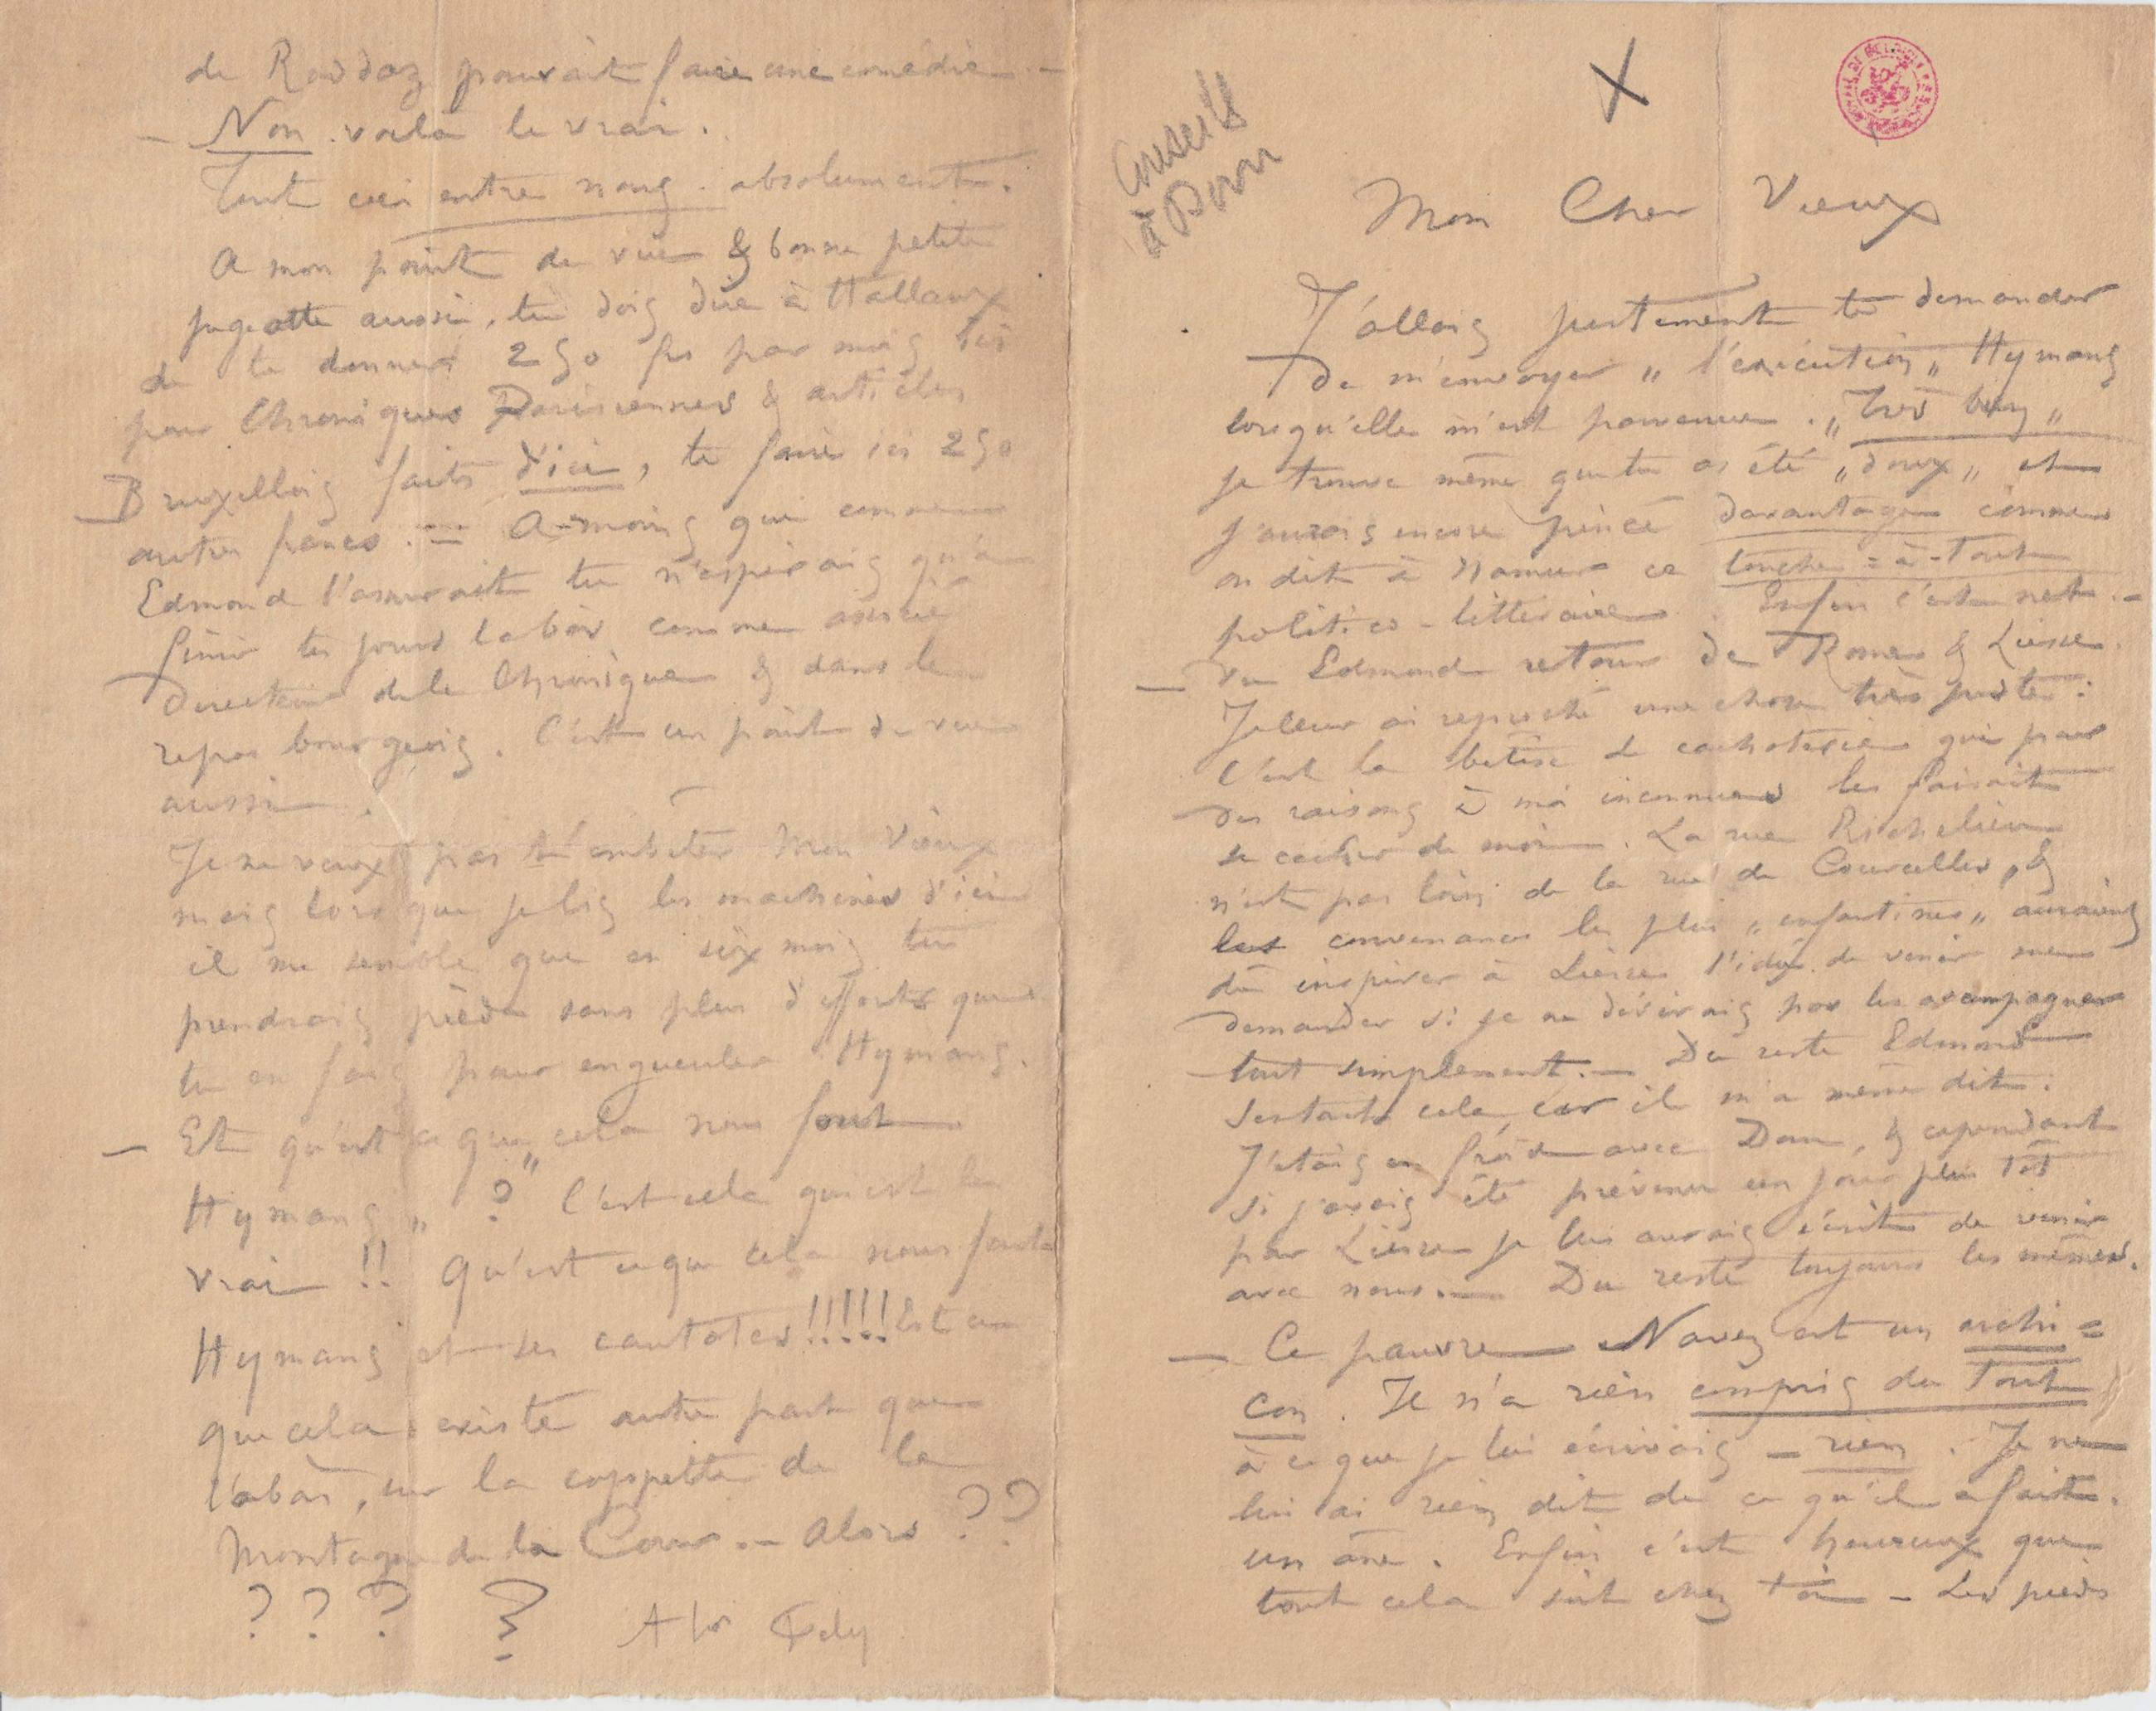 Conseils
à Dom
X
Mon Cher Vieux
J'allais justement te demander
de m'envoyer „ l'exécution „ Hymans
lorsqu'elle m'est parvenue . „ Très bien „
je trouve même que tu as été „ doux „ et
j'aurais encore pincé davantage comme
on dit à Namur ce touche=à-tout
politico-littéraire . Enfin c'est net . –
– Vu Edmond retour de Rome & Liesse .
Je leur ai reproché une chose très juste :
C'est la bêtise de cachoterie qui pour
des raisons à moi inconnues les faisait
se cacher de moi . La rue Richelieu
n'est pas loin de la rue de Courcelles , &
les convenances les plus „ enfantines „ auraient
dû inspirer à Liesse l'idée de venir me
demander si je ne désirais pas les accompagner
tout simplement . – Du reste Edmond
sentait cela car il m'a même dit :
J'étais en froid avec Dom , & cependant
si j'avais été prévenu un jour plus tôt
par Liesse je lui aurais écrit de venir
avec nous . – Du reste toujours les mêmes .
– Ce pauvre Navez est un archi =
con . Il n'a rien compris du tout
à ce que je lui écrivais – rien . Je ne
lui ai rien dit de ce qu'il a fait .
un âne . Enfin c'est heureux que
tout cela soit chez toi – Les pieds
de Raddaz pouvait faire une comédie . –
– Non . voilà le vrai .
Tout ceci entre nous . absolument .
A mon point de vue & bonne petite
jugeotte aussi , tu dois dire à Hallaux
de te donner 250 frs par mois
pour Chroniques Parisiennes & articles
Bruxellois faits d'ici , te faire ici 250
autres francs . = A-moins que comme
Edmond l'assurait tu n'espérais qu'à
finir tes jours là bas comme associé
directeur de la Chronique & dans le
repos bourgeois . C'est un point de vue
aussi .
Je ne veux pas t'embêter Mon Vieux
mais lorsque je lis les machines d'ici
il me semble que en six mois tu
prendrais pied sans plus d'efforts que
tu en fais pour engueuler Hymans .
– Et qu'est ce que „ cela nous fout
Hymans „ ? C'est cela qui est le
vrai !! Qu'est ce que cela nous fout
Hymans et ses cantates !!!!! Est ce
que cela existe autre part que
là bas , sur la coppette de la
Montagne de la Cour . – Alors ??
? ? ? ? A toi Fély